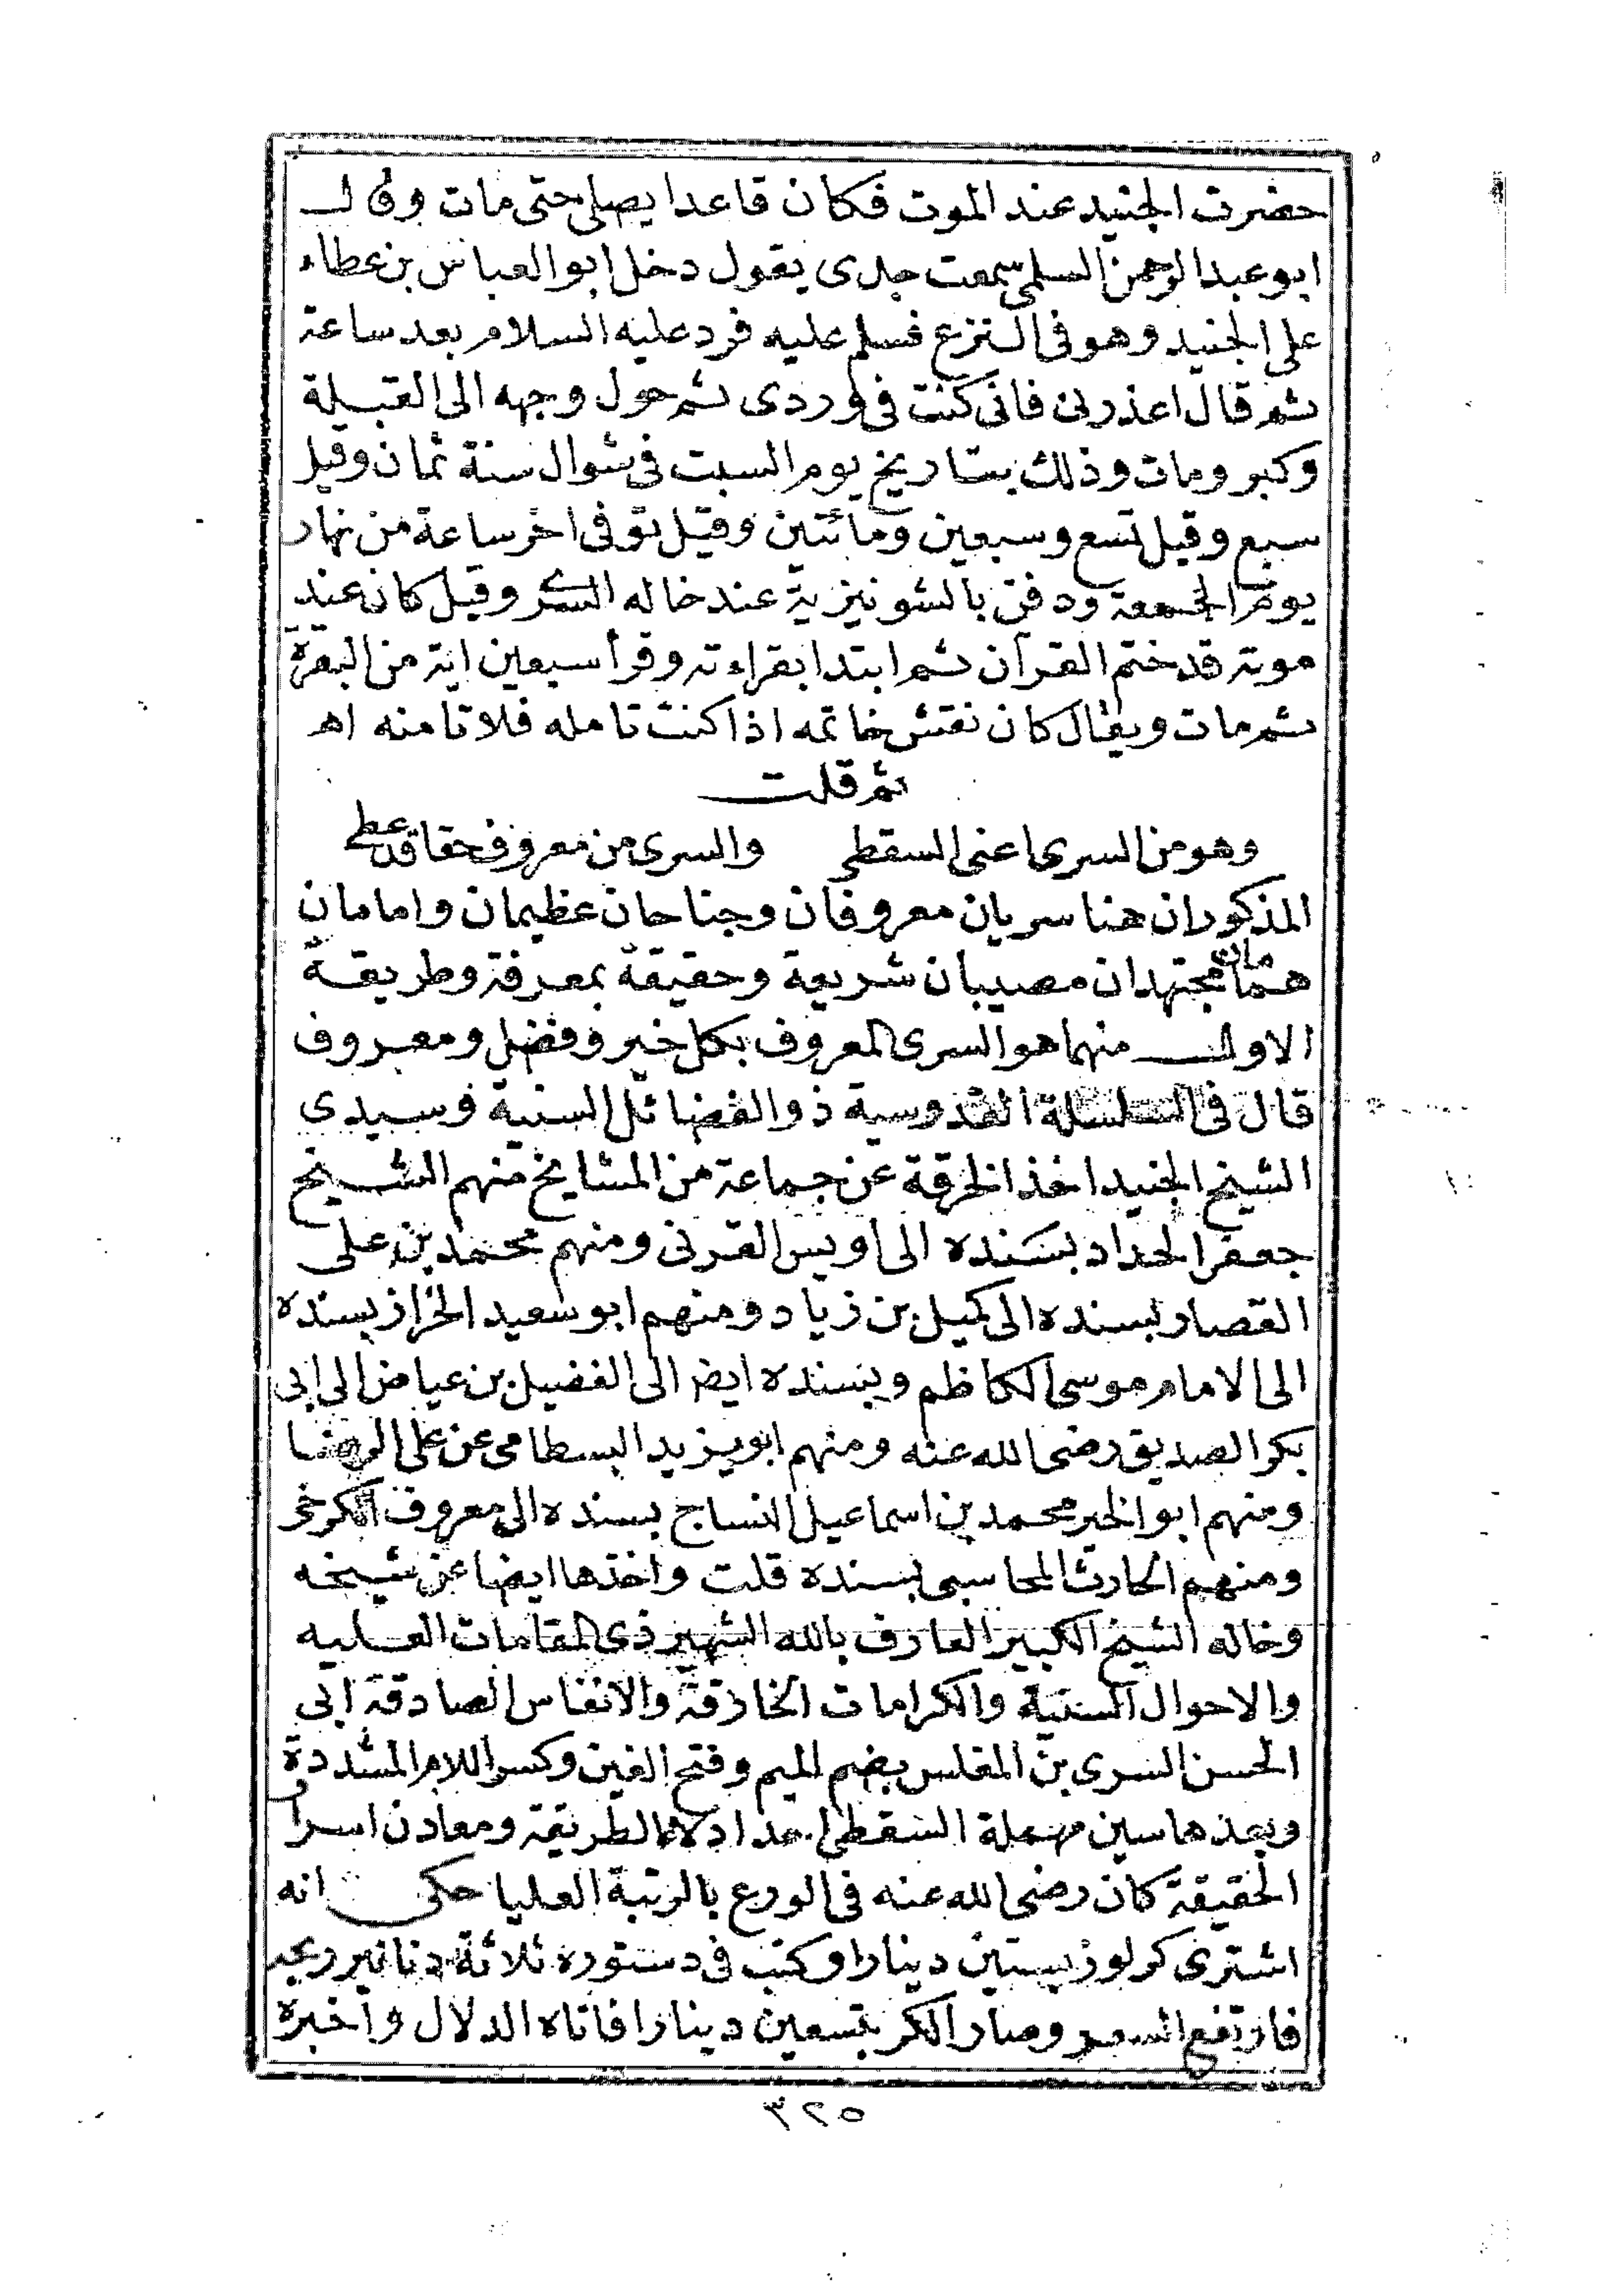 حضرت الجنيد عند الموت فكان قاعدا يصلى حتى مات وقال
ابو عبد الرحمن السلمى سمعت جدى يقول دخل ابو العباس بن عطاء
على الجنيد وهو فى النزع فسلم عليه فرد عليه السلام بعد ساعة
ثم قال اعذرنى فانى كنت فى وردى ثم حول وجهه الى القبلة
وكبر ومات وذلك بتاريخ يوم السبت فى شوال سنة ثمان وقيل
سبع وقيل تسع وسبعين ومائتين وقيل توفى اخر ساعة من نهار
يوم الجمعة ودفن بالشونيزية عند خاله السرى وقيل كان عند
موته قد ختم القرآن ثم ابتدا بقراءته وقرأ سبعين اية من البقرة
ثم مات ويقال كان نقش خاتمه اذا كنت تامله فلا تامنه اهـ
ثم قلت
وهو من السرى اعنى السقطى والسرى من معروف حقا قد عطى
المذكوران هنا سريان معروفان وجناحان عظيمان وامامان
همامان مجتهدان مصيبان شريعة وحقيقة بمعرفة وطريقة
الاول منهما هو السرى المعروف بكل خير وفضل ومعروف
قال فى السلسلة القدوسية ذو الفضائل السنية وسيدى
الشيخ الجنيد اخذ الخرقة عن جماعة من المشايخ منهم الشيخ
جعفر الحداد بسنده الى اويس القرنى ومنهم محمد بن على
القصار بسنده الى كميل بن زياد ومنهم ابو سعيد الخراز بسنده
الى الامام موسى الكاظم وبسنده ايضا الى الفضيل بن عياض الى ابى
بكر الصديق رضى الله عنه ومنهم ابو يزيد البسطامى عن على الرضا
ومنهم ابو الخير محمد بن اسماعيل النساج بسنده الى معروف الكرخى
ومنهم الحارث المحاسبى بسنده قلت واخذها ايضا عن شيخه
وخاله الشيخ الكبير العارف بالله الشهير ذى المقامات العليه
والاحوال السنية والكرامات الخارقة والانفاس الصادقة ابى
الحسن السرى بن المغلس بضم الميم وفتح الغين وكسر اللام المشددة
وبعدها سين مهملة السقطى احد ادلاء الطريقة ومعادن اسرار
الحقيقة كان رضى الله عنه فى الورع بالرتبة العليا حكى انه
اشترى كر لوز بستين دينارا وكتب فى دستوره ثلاثة دنانير ربحه
فارتفع السعر وصار الكر بتسعين دينارا فاتاه الدلال واخبره
٣٢٥